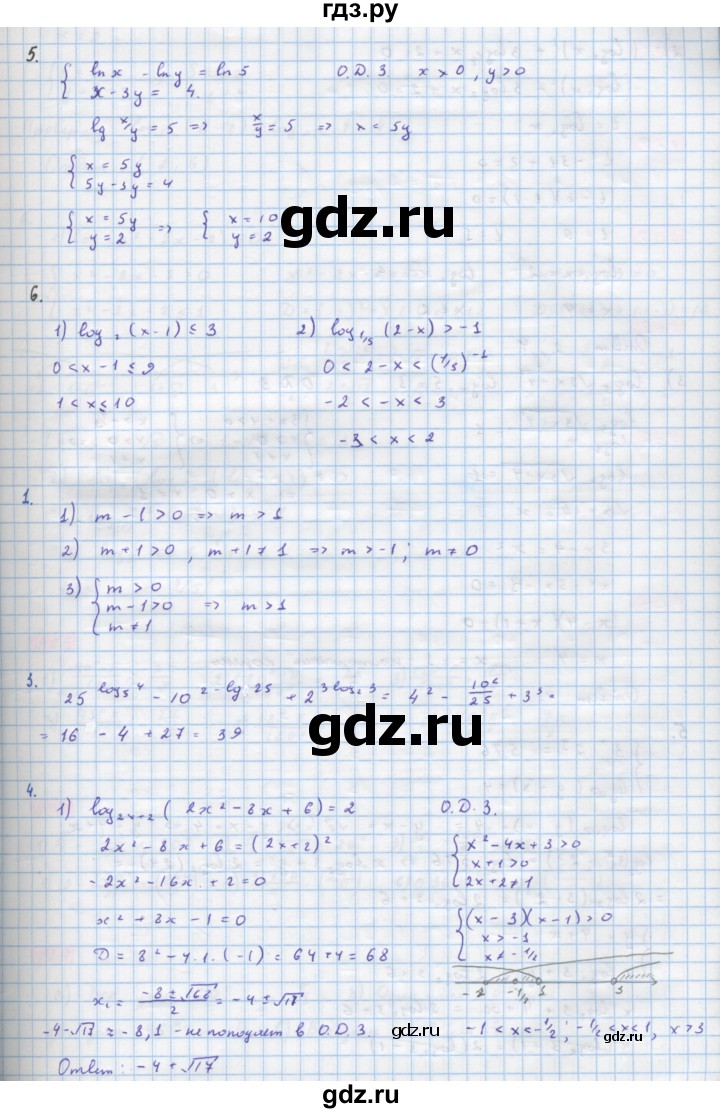 гдз.ру
5.
{ ln x - ln y = ln 5    О.Д.З.  x > 0, y > 0
{ x - 3y = 4.
lg x/y = 5 => x/y = 5 => x = 5y
{ x = 5y
{ 5y - 3y = 4
{ x = 5y => { x = 10
{ y = 2      { y = 2
gdz.ru
6.
1) log₂ (x-1) ≤ 3    2) log₁/₅ (2-x) > -1
0 < x - 1 ≤ 9    0 < 2 - x < (1/5)⁻¹
1 < x ≤ 10    -2 < -x < 3
-3 < x < 2
1.
1) m - 1 > 0 => m > 1
2) m + 1 > 0, m + 1 ≠ 1 => m > -1; m ≠ 0
3) { m > 0
{ m - 1 > 0 => m > 1
{ m ≠ 1
3.
25^(log₅ 4) - 10^(2 - lg 25) + 2^(3 log₂ 3) = 4² - 10²/25 + 3³ =
= 16 - 4 + 27 = 39
gdz.ru
4.
1) log₂ₓ₊₂ (2x² - 8x + 6) = 2    О.Д.З.
2x² - 8x + 6 = (2x+2)²    { x² - 4x + 3 > 0
{ x + 1 > 0
- 2x² - 16x + 2 = 0    { 2x + 2 ≠ 1
x² + 8x - 1 = 0    { (x - 3)(x - 1) > 0
{ x > -1
D = 8² - 4·1·(-1) = 64 + 4 = 68    { x ≠ -1/2
x₁ = (-8 ± √68)/2 = -4 ± √17    -1  -1/2  1  3
-4-√17 ≈ -8,1 - не попадает в О.Д.З.    -1 < x < -1/2; -1/2 < x < 1, x > 3
Ответ: -4 + √17
gdz.ru
gdz.ru